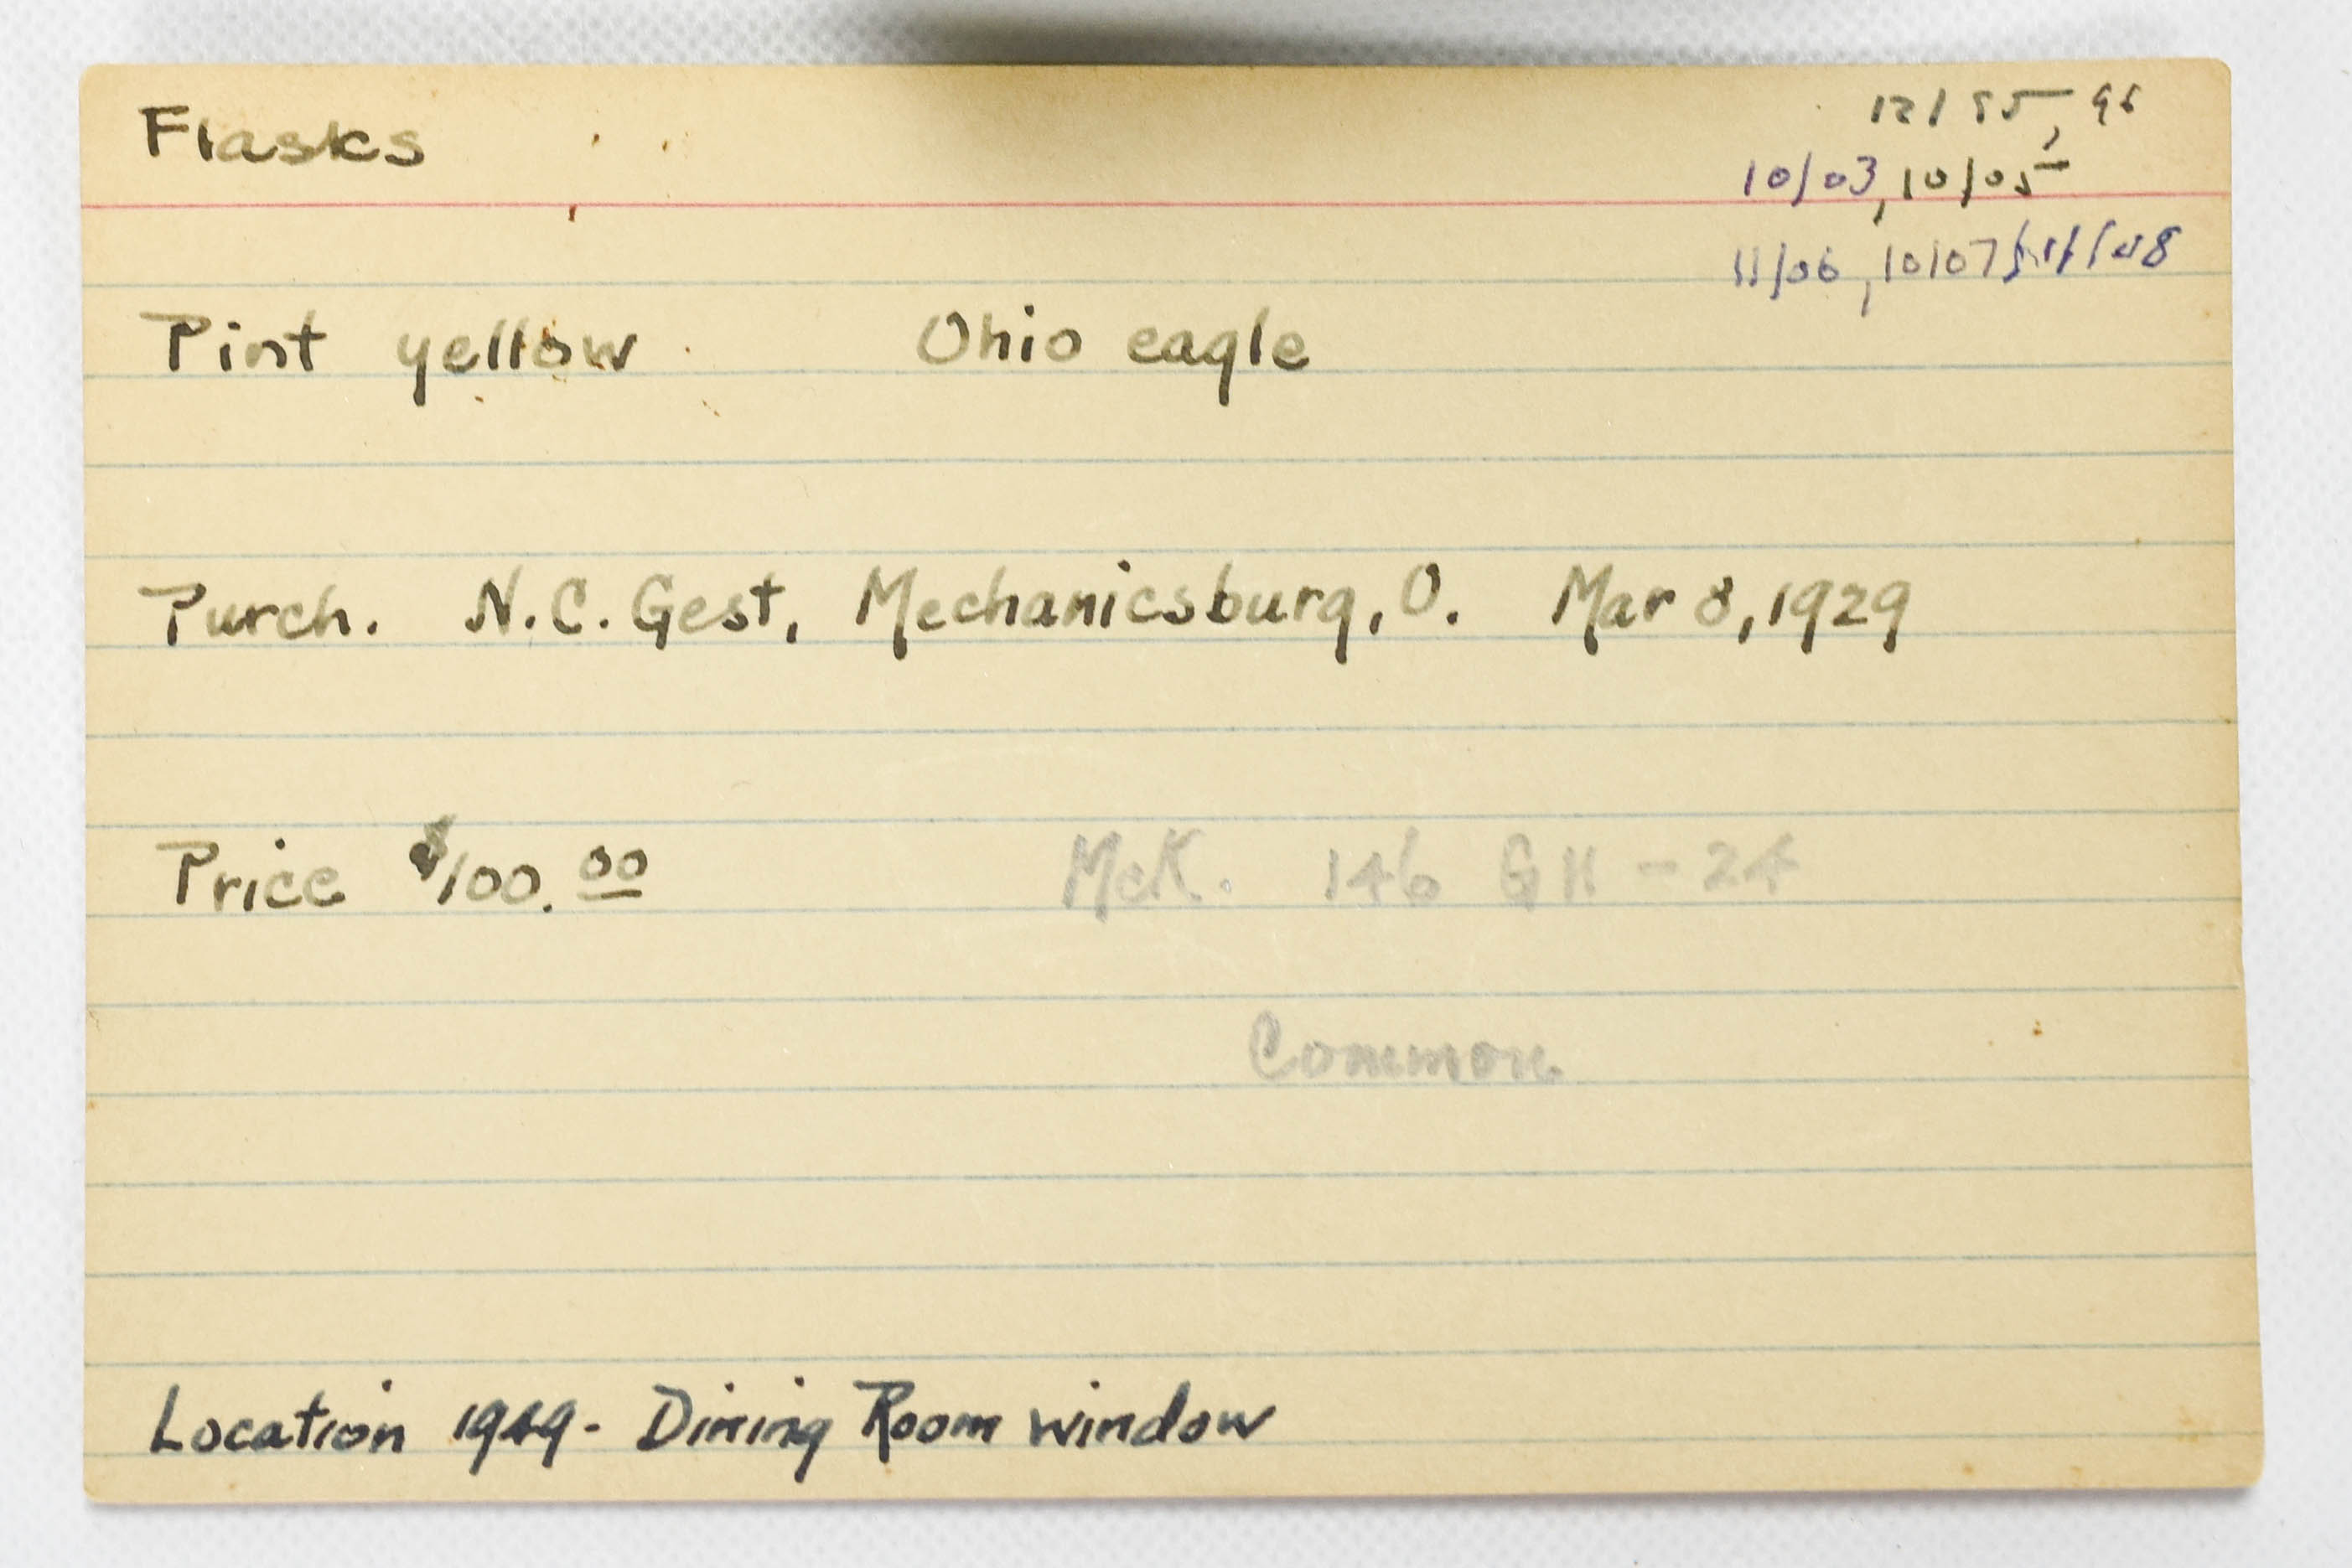 Flasks
12/95, 96
10/03, 10/05
11/06, 10/07, 11/08
Pint yellow Ohio eagle
Purch. N.C. Gest, Mechanicsburg, O. Mar 8, 1929
Price $100.00 McK. 146 GII-24
Common
Location 1949- Dining Room window